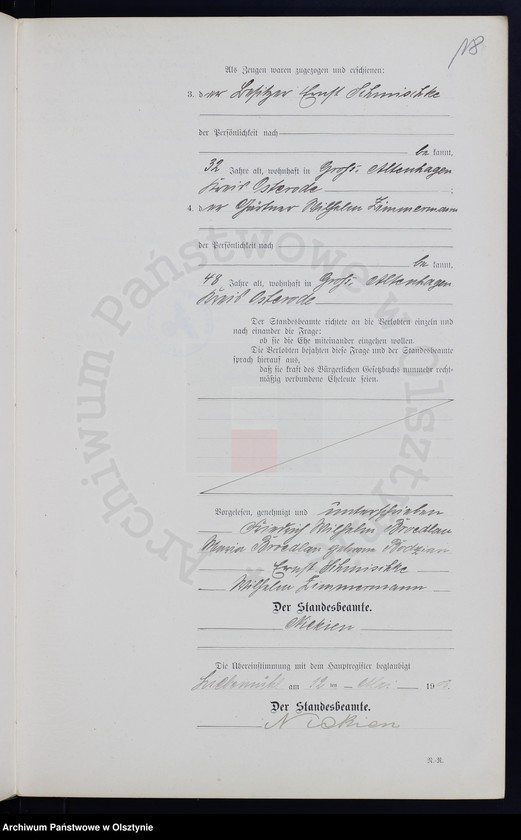 N8
Als Zeugen waren zugezogen und erschienen:
3. der Besitzer Ernst Schmischke
der Persönlichkeit nach
be kannt,
32 Jahre alt, wohnhaft in Groß Altenhagen
Kreis Osterode ;
4. der Gärtner Wilhelm Zimmermann
der Persönlichkeit nach
be kannt,
48 Jahre alt, wohnhaft in Groß Altenhagen
Kreis Osterode
Der Standesbeamte richtete an die Verlobten einzeln und
nach einander die Frage:
ob sie die Ehe miteinander eingehen wollen.
Die Verlobten bejahten diese Frage und der Standesbeamte
sprach hierauf aus,
daß sie kraft des Bürgerlichen Gesetzbuchs nunmehr recht-
mäßig verbundene Eheleute seien.
Vorgelesen, genehmigt und unterschrieben
Friedrich Wilhelm Broedlau
Maria Broedlau geborene
Ernst Schmischke
Wilhelm Zimmermann
Der Standesbeamte.
Nickien
Die Übereinstimmung mit dem Hauptregister beglaubigt
Liebemühl am 12 ten Mai 190
Der Standesbeamte.
Nickien
R.-R.
Archiwum Państwowe w Olsztynie
Archiwum Państwowe w Olsztynie